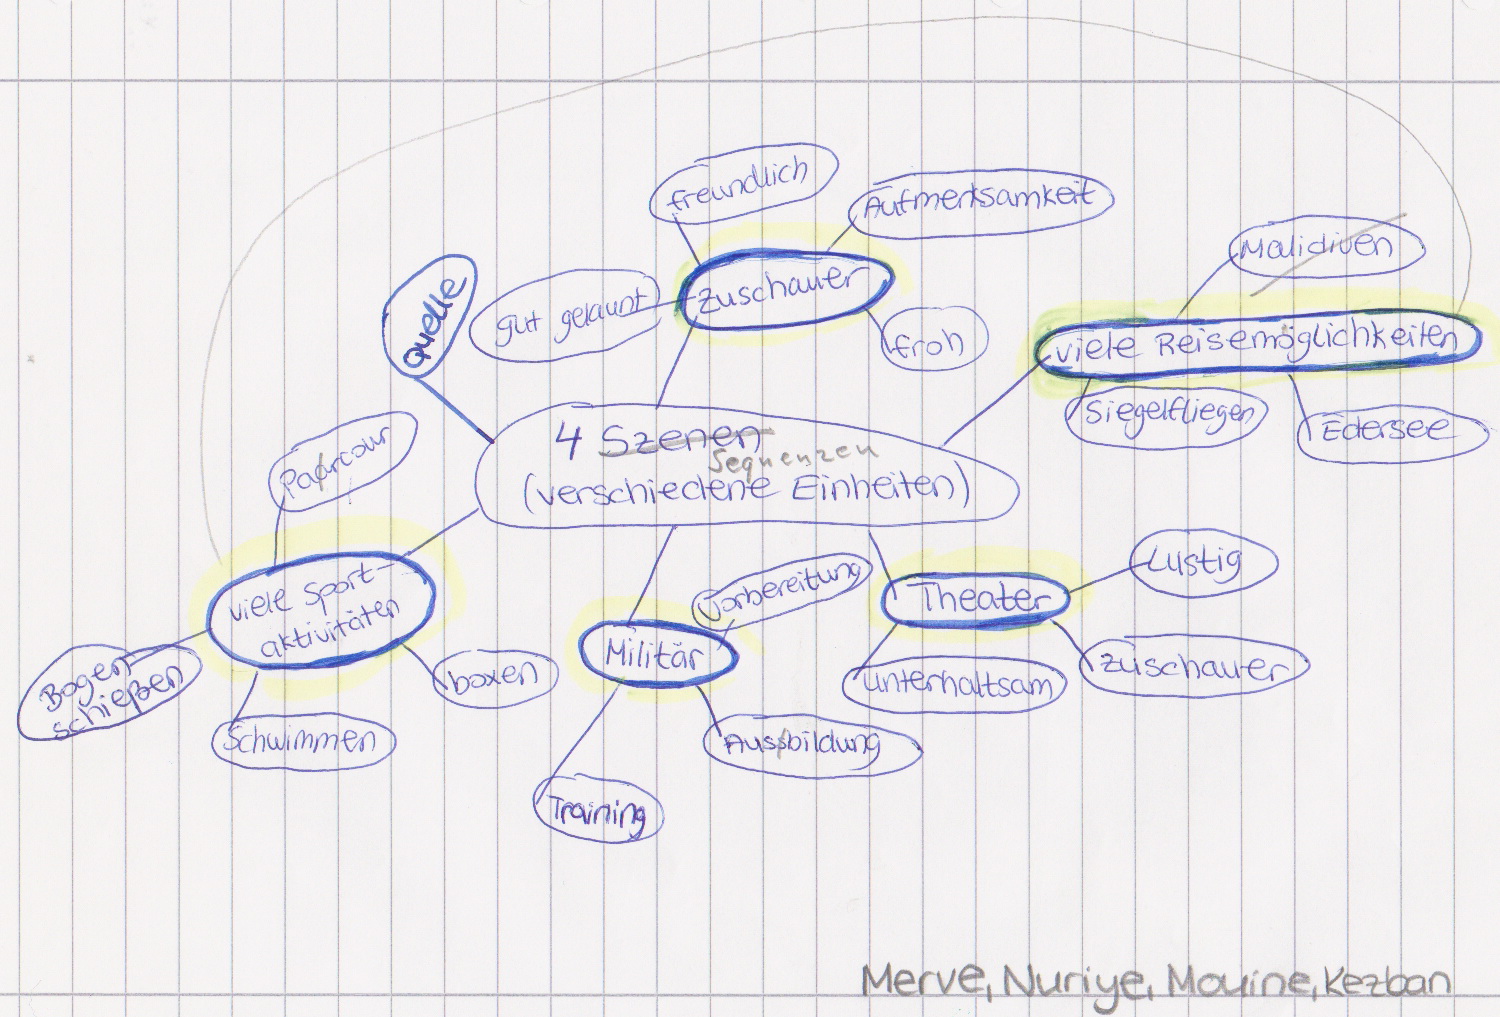 freundlich
Aufmerksamkeit
Malidiven
Quelle
gut gelaunt
Zuschauer
froh
viele Reisemöglichkeiten
Siegelfliegen
Edersee
4 Szenen
Sequenzen
(verschiedene Einheiten)
Parcour
viele Sport-
aktivitäten
Bogen
schießen
Schwimmen
boxen
Militär
Vorbereitung
Training
Aussbildung
Theater
Lustig
unterhaltsam
zuschauer
Merve, Nuriye, Mouine, Kezban